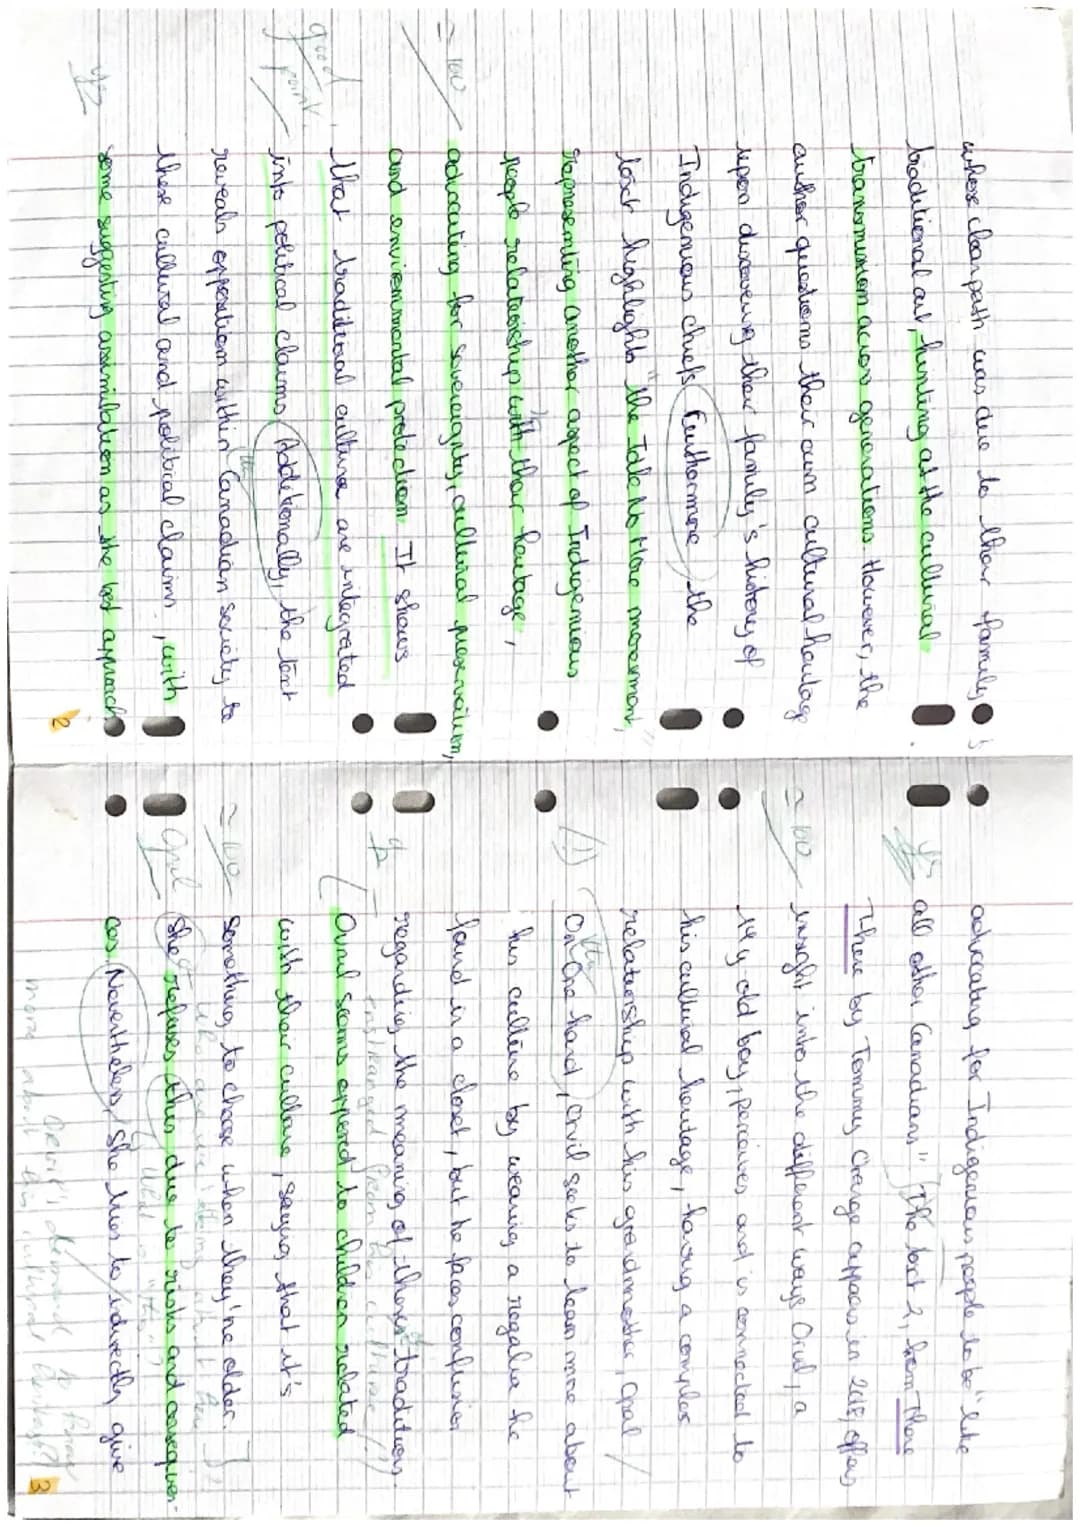 where clear path was due to their family's
traditional art, hunting as the cultural
transmission across generations. However, the
author questions their own cultural heritage
upon discovering their family's history of
Indigenous chiefs. Furthermore, the
text highlights "the Idle No More movement,"
representing another aspect of Indigenous
people relationship with their heritage,
= 100 advocating for sovereignty, cultural preservation,
and environmental protection. It shows
good that traditional culture are integrated
point. into political claims. Additionally, the text
reveals opposition within Canadian society to
these cultural and political claims, with
some suggesting assimilation as the best approach
2
advocating for Indigenous people to be "like
all other Canadians" The text 2, from There
There by Tommy Orange appears in 2018, offers
= 100 insight into the different ways Orvil, a
14 y old boy, perceives and is connected to
his cultural heritage, having a complex
relationship with his grandmother, Opal
On One hand, Orvil seeks to learn more about
his culture by wearing a regalia he
found in a closet, but he faces confusion
regarding the meaning of those traditions.
Orvil seems opposed to children related
with their culture, saying that it's
= 100 something to choose when they're older.
Opal She refuses this due to risks and consequen-
ces. Nevertheless, she tries to indirectly give
Orvil's demand to know
more about his cultural heritage?
3